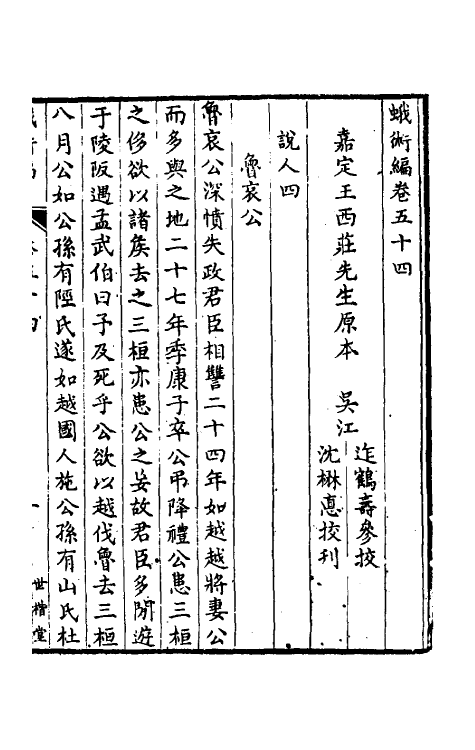 蛾術編卷五十四
嘉定王西莊先生原本　吳江
迮鶴壽參挍
沈楙悳挍刊
說人四
魯哀公
魯哀公深憤失政君臣相讐二十四年如越越將妻公
而多與之地二十七年季康子卒公弔降禮公患三桓
之侈欲以諸矦去之三桓亦患公之妄故君臣多閒遊
于陵阪遇孟武伯曰予及死乎公欲以越伐魯去三桓
八月公如公孫有陘氏遂如越國人施公孫有山氏杜
世楷堂